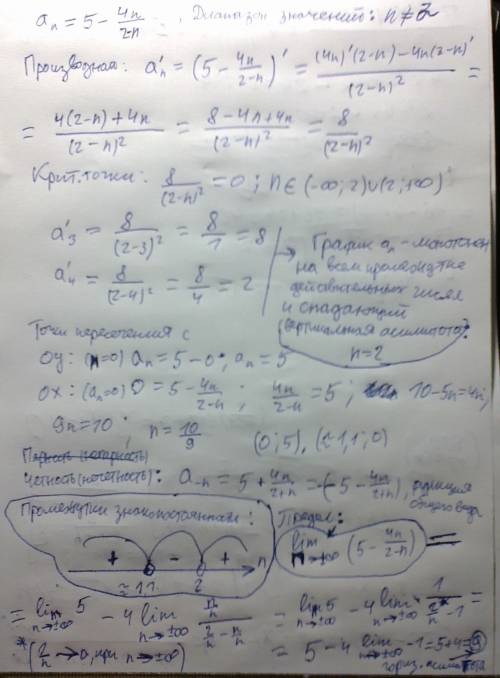 aₙ = 5 - 4n/(2-n) . Диапазон значений: n ≠ 2
Производная: a'ₙ = (5 - 4n/(2-n))' = ((4n)'(2-n) - 4n(2-n)')/(2-n)² =
= (4(2-n)+4n)/(2-n)² = (8-4n+4n)/(2-n)² = 8/(2-n)²
Крит. точки: 8/(2-n)² = 0 ; n ∈ (-∞; 2)∪(2; +∞)
a'₃ = 8/(2-3)² = 8/1 = 8
a'₄ = 8/(2-4)² = 8/4 = 2
→ График aₙ - монотонен
на всём промежутке
действительных чисел
и спадающий
(вертикальная асимптота)
n = 2
Точки пересечения с
OY: (n=0) aₙ = 5 - 0 ; aₙ = 5
OX: (aₙ=0) 0 = 5 - 4n/(2-n) ; 4n/(2-n) = 5 ; 10-5n=4n;
9n=10 ; n = 10/9 (0; 5), (≈1,1; 0)
Четность (нечетность): a₋ₙ = 5 + 4n/(2+n) = -(-5 - 4n/(2+n)), функция
общего вида
Промежутки знакопостоянства:
+ - + n
≈1,1 2
Предел:
lim n→±∞ (5 - 4n/(2-n)) =
= lim n→±∞ 5 - 4 lim n→±∞ (n/n)/(2/n - n/n) = lim n→±∞ 5 - 4 lim n→±∞ * 1/(2/n - 1) =
* (2/n → 0, при n→±∞)
= 5 - 4 lim n→±∞ -1 = 5+4 = 9
гориз. асимптота